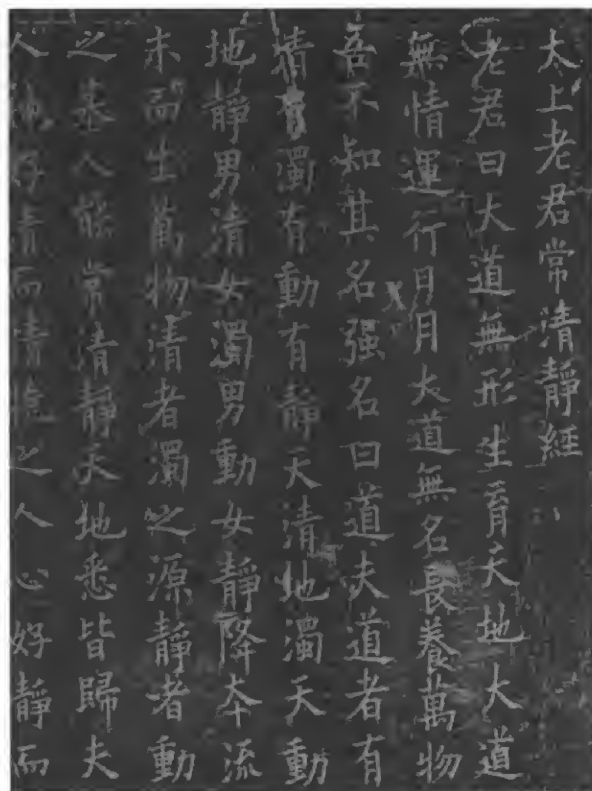 太上老君常清靜經
老君曰大道無形生育天地大道
無情運行日月大道無名長養萬物
吾不知其名强名曰道夫道者有
清有濁有動有靜天清地濁天動
地靜男清女濁男動女靜降本流
末而生萬物清者濁之源靜者動
之基人能常清靜天地悉皆歸夫
人神好清而心好靜而